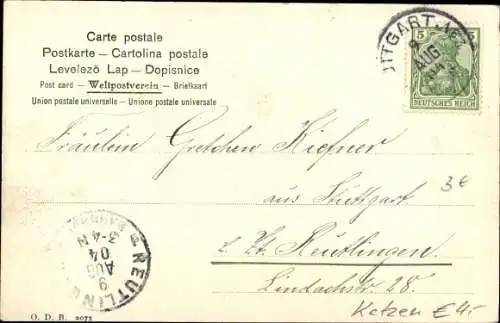 Carte postale
Postkarte – Cartolina postale
Levelező Lap – Dopisnice
Post card – Weltpostverein – Briefkaart
Union postale universelle – Unione postale universale
STUTTGART.
9
AUG
5
DEUTSCHES REICH
Fräulein Gretchen Kiefner
aus Stuttgart.
z. Zt. Reutlingen.
Lindachstr. 28.
3€
REUTLING
BAHNHOF
3-4 N
04
AUG
9
Katzen €4,-
O. D. R. 2071